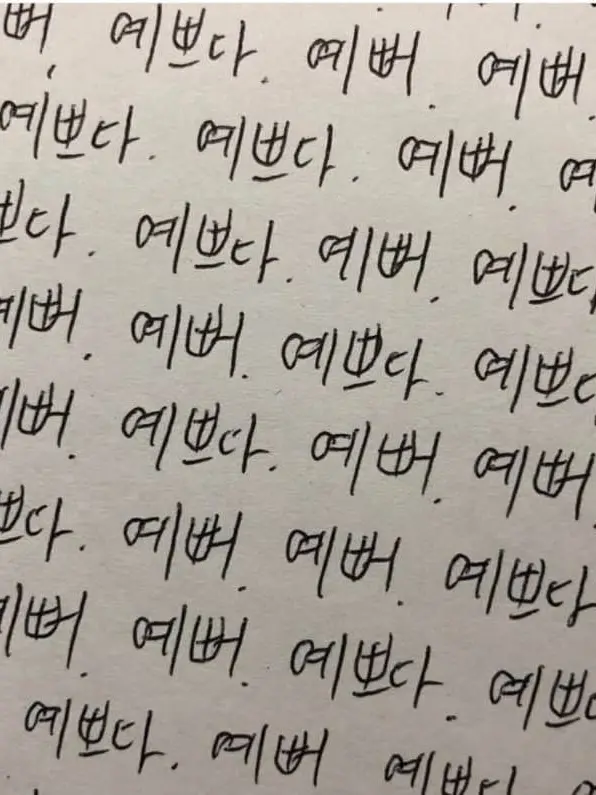 뻐. 예쁘다. 예뻐. 예뻐.
예쁘다. 예쁘다. 예뻐. 예
쁘다. 예쁘다. 예뻐. 예쁘다
예뻐. 예뻐. 예쁘다. 예쁘다
예뻐. 예쁘다. 예뻐. 예뻐.
쁘다. 예뻐. 예뻐. 예쁘다
예뻐. 예뻐. 예쁘다. 예쁘
예쁘다. 예뻐 예쁘다